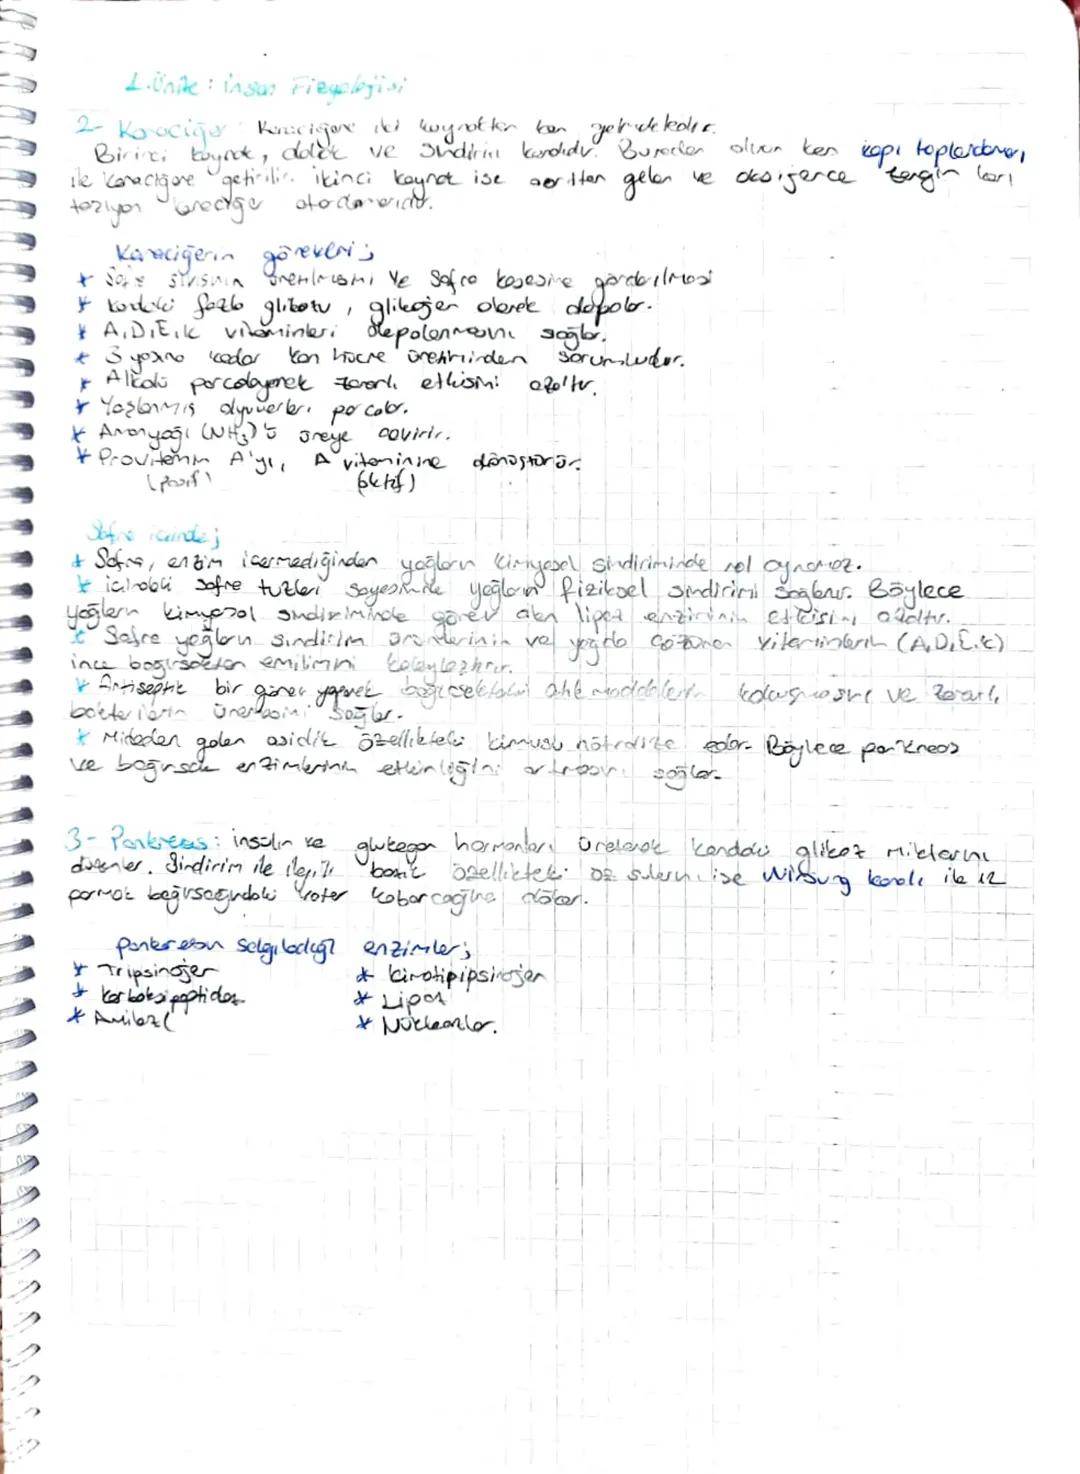 1. Ünite: insan Fizyolojisi
2- Karaciğer: Karaciğere iki kaynaktan kan gelmektedir.
Birinci kaynak, dalak ve sindirim kanalıdır. Buradan alınan kan kapı toplardamarı
ile karaciğere getirilir. ikinci kaynak ise aorttan gelen ve oksijence zengin kanı
taşıyan karaciğer atardamarıdır.
Karaciğerin görevleri;
* Safra sıvısının üretilmesini ve Safra kesesine gönderilmesi
* kandaki fazla glikozu, glikojen olarak depolar.
* A,D,E,K vitaminleri depolanmasını sağlar.
* 3 yaşına kadar kan hücre üretiminden sorumludur.
* Alkolü parçalayarak zararlı etkisini azaltır.
* Yaşlanmış alyuvarları parçalar.
* Amonyağı (NH3)'ü üreye çevirir.
* Provitamin A'yı, A vitaminine dönüştürür.
(pasif) (aktif)
Safra içinde;
* Safra, enzim içermediğinden yağların kimyasal sindiriminde rol oynamaz.
* içindeki safra tuzları sayesinde yağların fiziksel sindirimi sağlanır. Böylece
yağların kimyasal sindiriminde görev alan lipaz enziminin etkisini azaltır.
* Safra yağların sindirim ürünlerinin ve yağda çözünen vitaminlerin (A,D,E,K)
ince bağırsaktan emilimini kolaylaştırır.
* Antiseptik bir görev yaparak bağırsaktaki atık maddelerin kokuşmasını ve zararlı
bakterilerin üremesini sağlar.
* Mideden gelen asidik özellikteki kimusu nötralize eder. Böylece pankreas
ve bağırsak enzimlerinin etkinliğini artmasını sağlar.
3- Pankreas: insülin ve glukagon hormonları üreterek kandaki glikoz miktarını
düzenler. Sindirim ile ilgili bazik özellikteki öz suların ise Wirsung kanalı ile 12
parmak bağırsağındaki vater kabarcağına döker.
pankreasın salgıladığı enzimler;
* Tripsinojen * kimotipipsinojen
* karboksipeptidaz * Lipaz
* Amilaz * Nükleazlar.